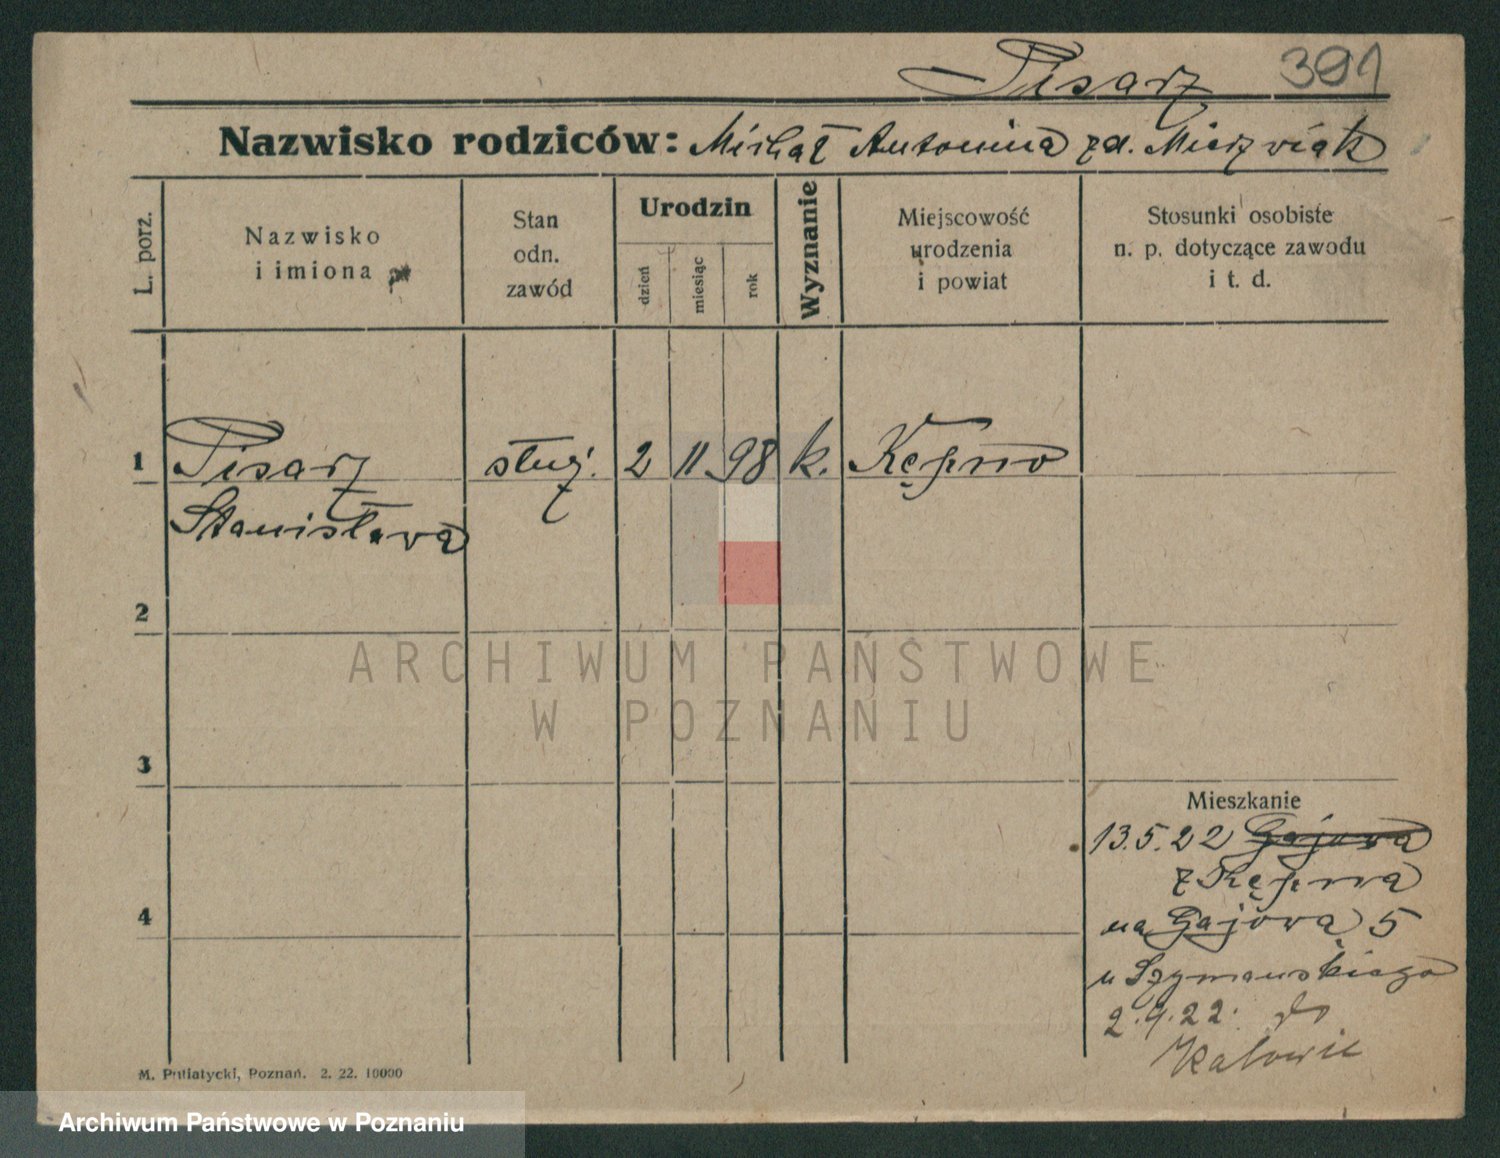 Pisarz 391
Nazwisko rodziców: Michał Antonina zd.
L. porz.
Nazwisko
i imiona
Stan
odn.
zawód
Urodzin
dzień
miesiąc
rok
Wyznanie
Miejscowość
urodzenia
i powiat
Stosunki osobiste
n. p. dotyczące zawodu
i t. d.
1 Pisarz służ. 2 11 98 k. Kępno
Stanisława
2
ARCHIWUM PAŃSTWOWE
W POZNANIU
3
Mieszkanie
13.5.22 Gajowa
z Kępna
4
na Gajową 5
u Szymańskiego
2.9.22. do
Katowic
M. Putiatycki, Poznań. 2. 22. 10000
Archiwum Państwowe w Poznaniu